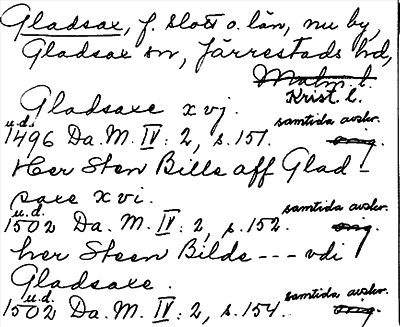 Gladsax, f. slott o. län, nu by,
Gladsax sn, Järrestads hd,
Malm. l.
Krist. l.
Gladsaxe xvj.
u.d. samtida avskr.
1496 Da. M. IV: 2, s. 151. orig.
Her Sten Bille aff Glad-
saxe xvi.
u.d. samtida avskr.
1502 Da. M. IV: 2, s. 152. orig.
her Steen Bilde --- vdi
Gladsaxe.
u.d. samtida avskr.
1502 Da. M. IV: 2, s. 154. orig.